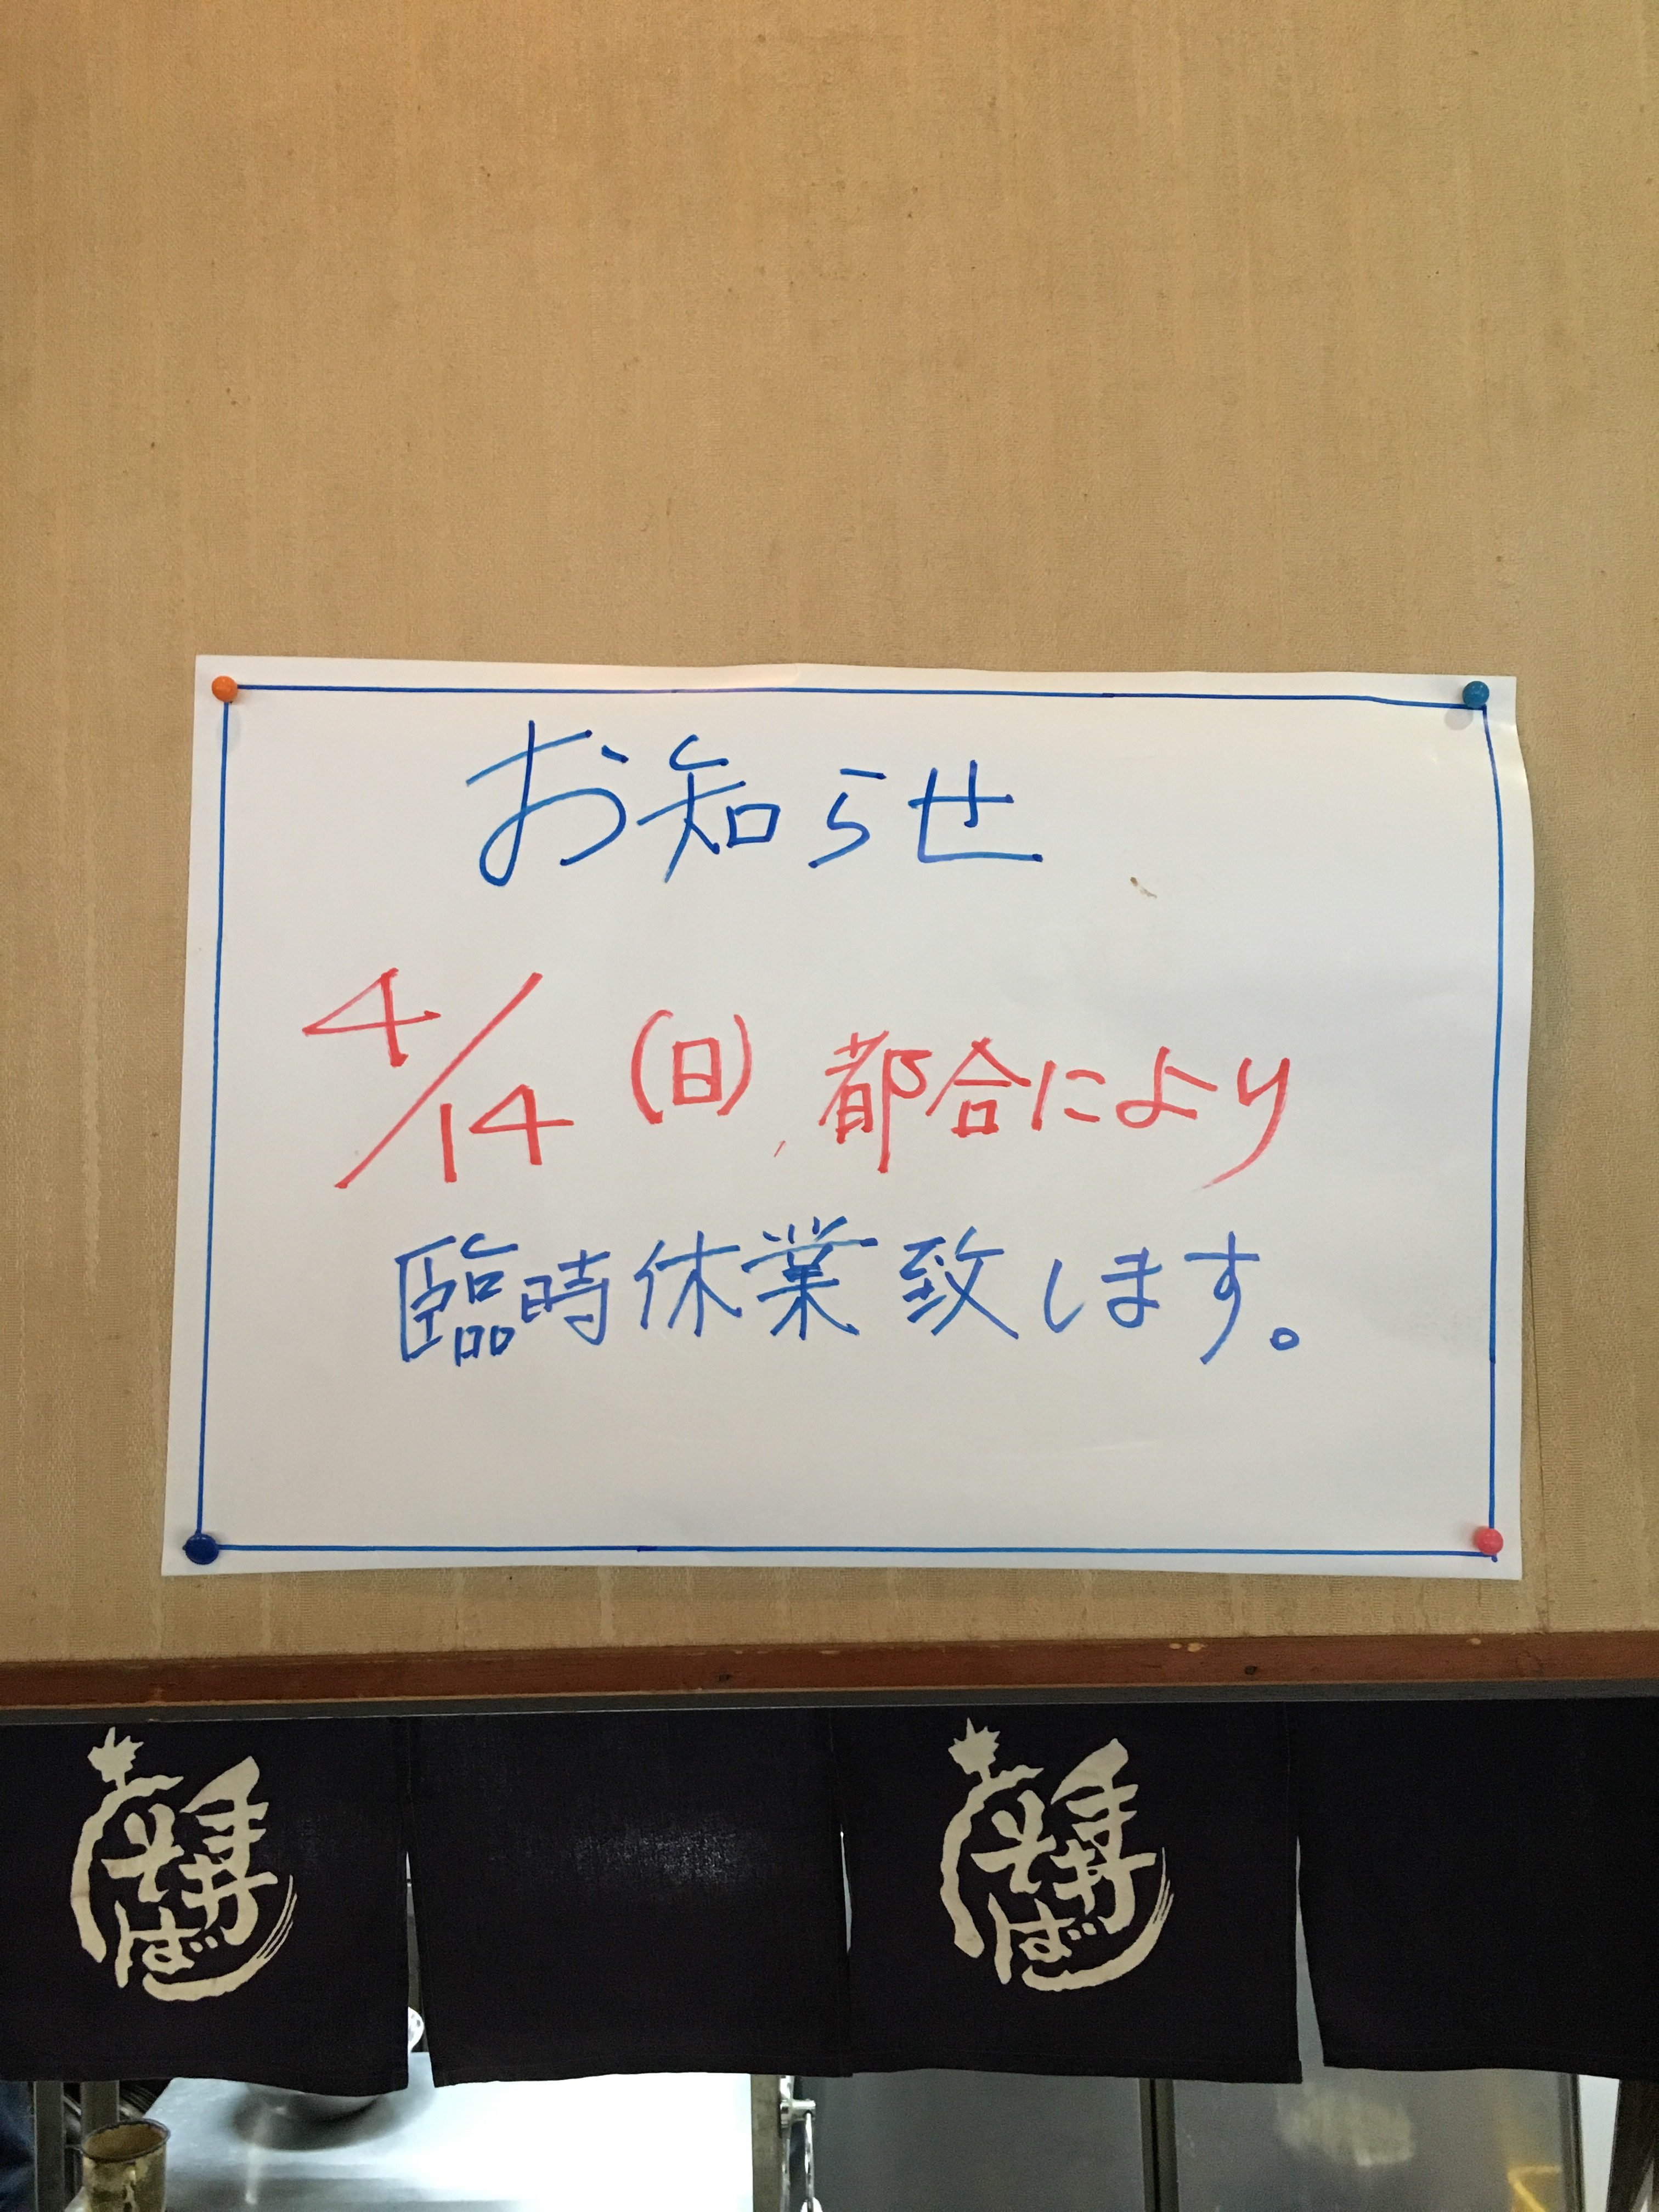 お知らせ
4/14(日)、都合により
臨時休業致します。
手丼
そば
手丼
そば